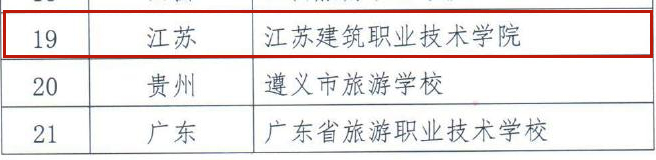 19 江苏 江苏建筑职业技术学院
20 贵州 遵义市旅游学校
21 广东 广东省旅游职业技术学校